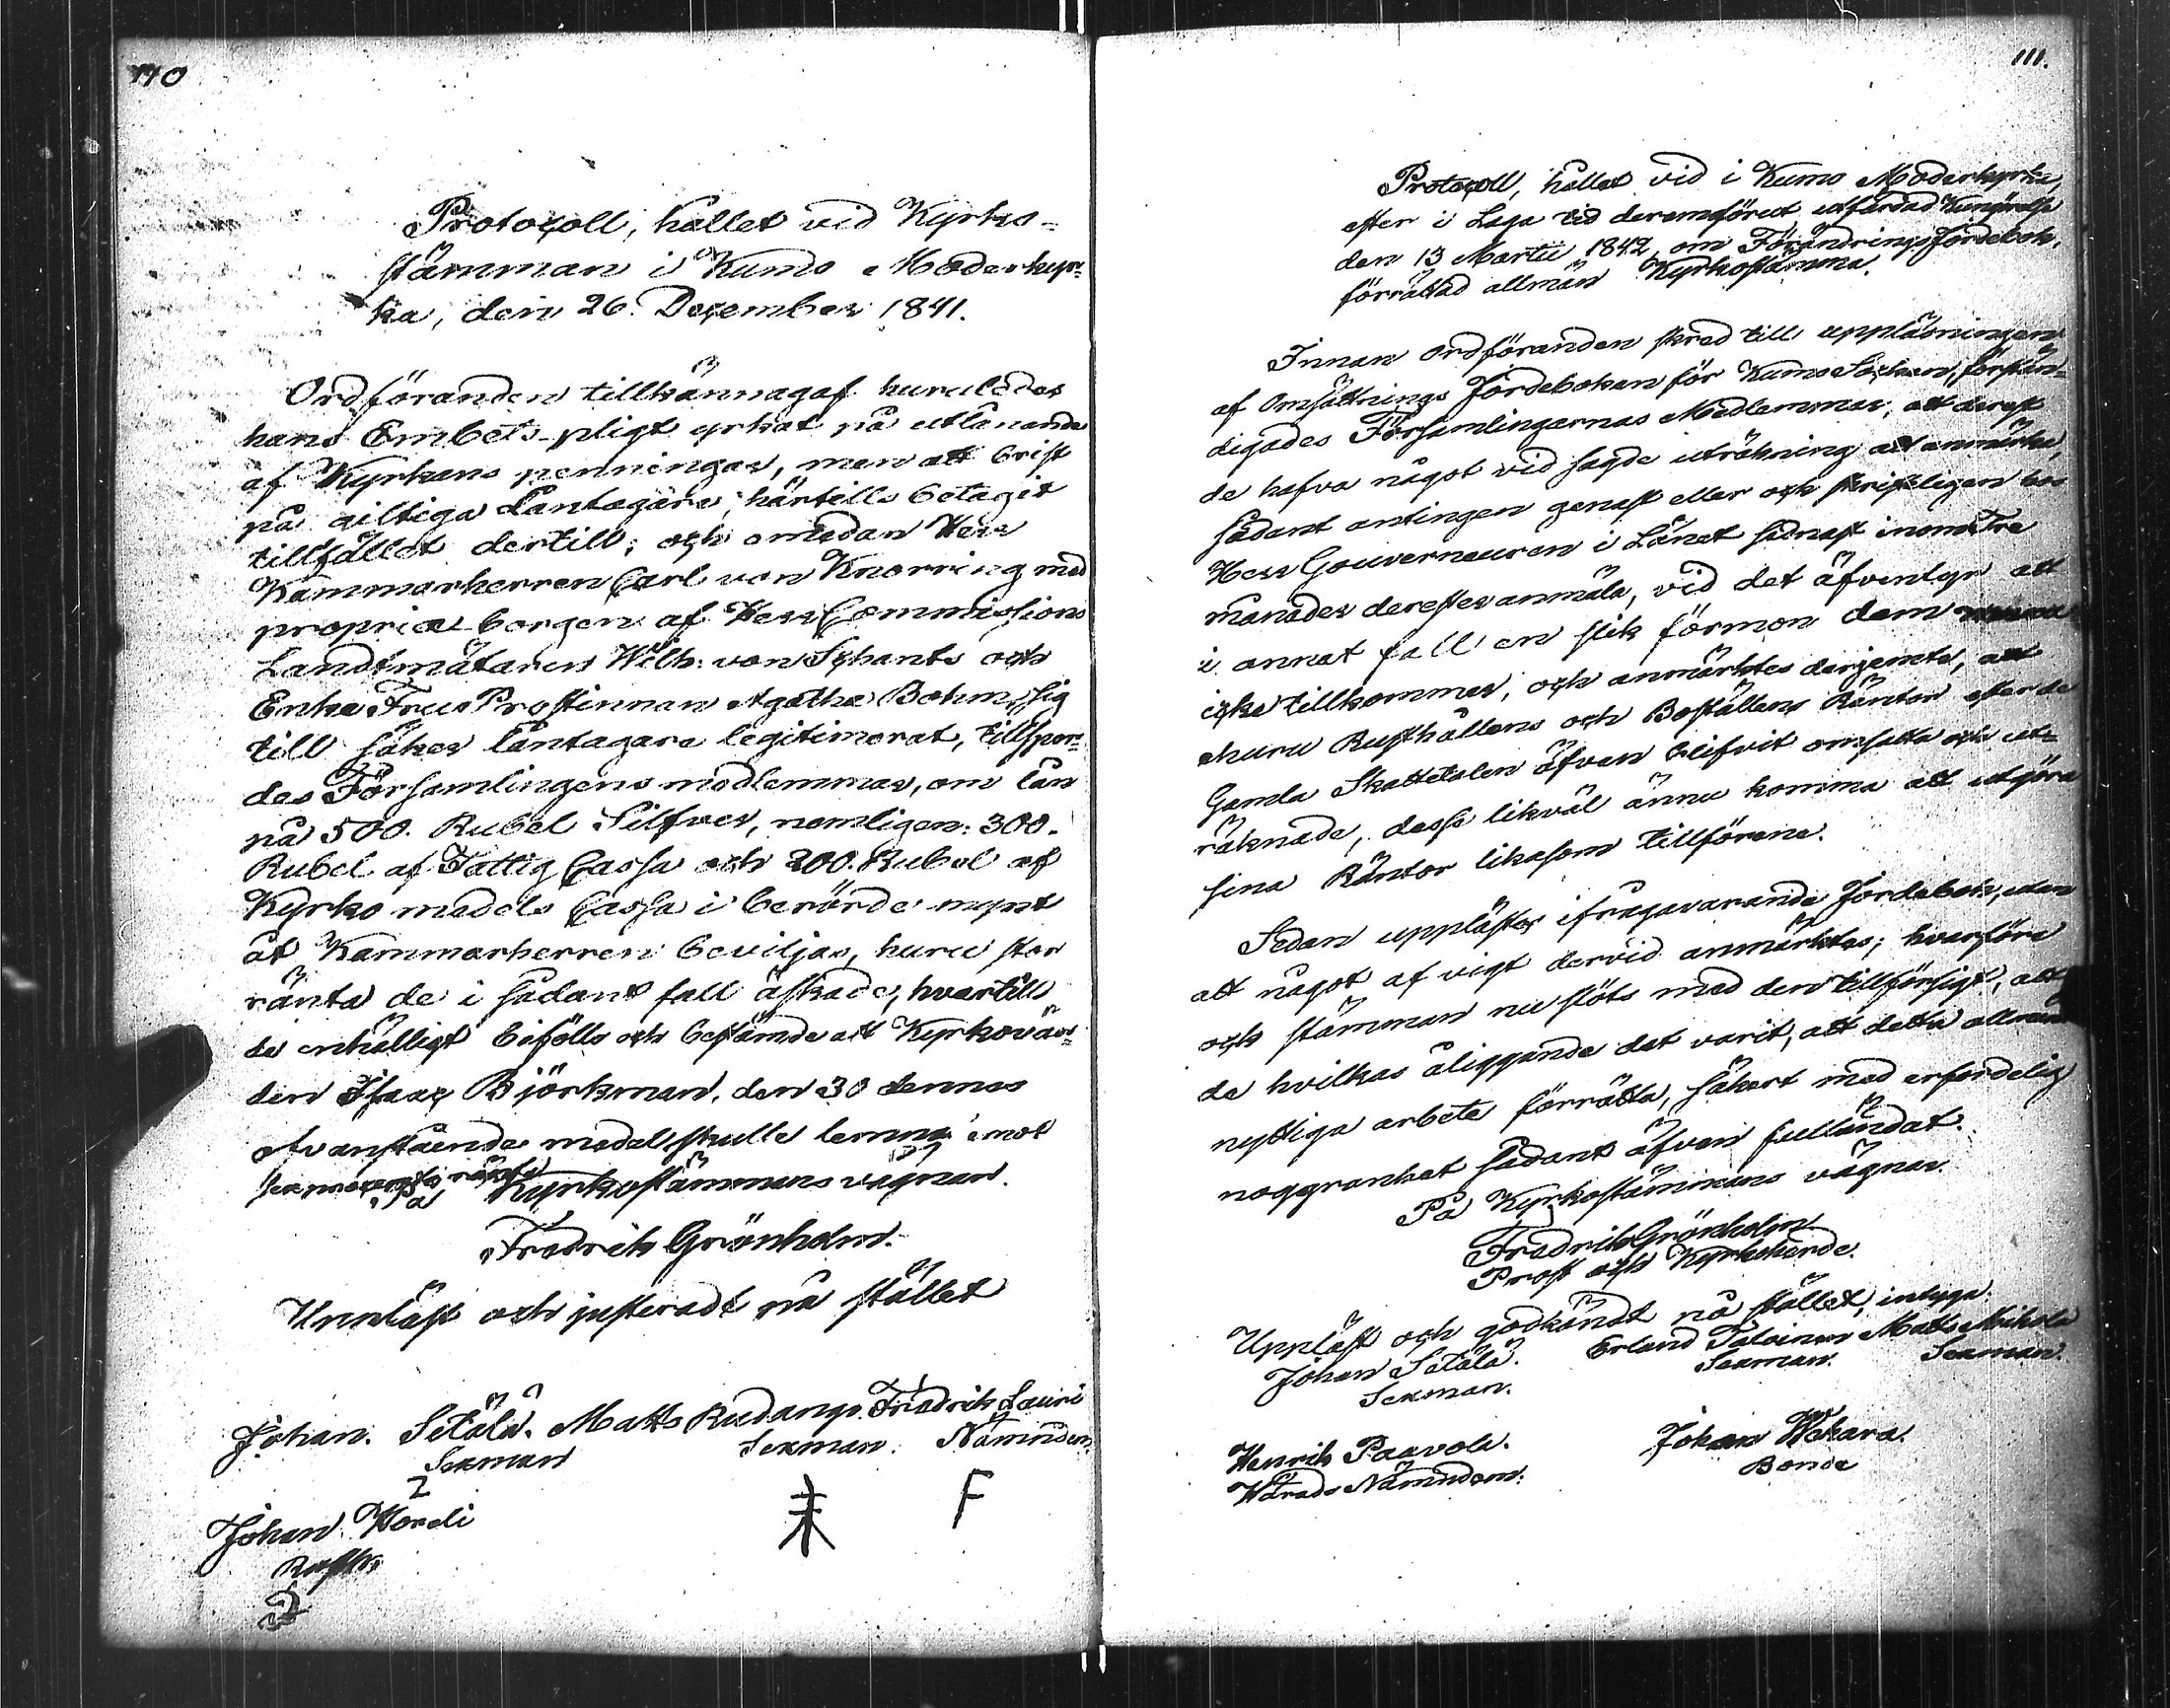 110
Protocoll, hållet vid Kyrko-
stämman i Kumo Moderkyr-
ka, den 26. December 1841.
Ordföranden tillkännagaf huruledes
hans Embets-pligt yrkat på utlånande
af Kyrkans penningar, men att brist
på giltiga Låntagare härtills betagit
tillfället dertill; och emedan Herr
Kammarherren Carl von Knorring med
propria borgen af Herr Commissions
Landtmätaren Wilh: von Schantz och
Enke Fru Prostinnan Agatha Bohm, sig
till säker låntagare legitimerat, tillspor-
des Församlingens medlemmar, om lån
på 500. Rubel Silfver, nemligen: 300.
Rubel af Fattig Cassa och 200. Rubel af
Kyrko medels Cassa i berörde mynt
åt Kammarherren beviljas, huru stor
ränta de i sådant fall äskade, hvartill
de enhälligt biföllo och bestämde att Kyrkovär-
den Isaac Björkman, den 30 dennes
ofvanstående medel skulle lemna emot
sex procents ränta
På Kyrkostämmans vägnar.
Fredrik Grönholm.
Uppläst och justeradt på stället
Johan. Setälä. Matts Rudanpo Fredrik Lauri
Sexman Sexman. Nämndem.
Johan Horeli
Rusth:
F
111.
Protocoll, hållet vid i Kumo Moderkyrka,
efter i Laga tid deromförut utfärdad Kungörelse
den 13 Martii 1842, om Förändrings Jordebok,
förrättad allmän Kyrkostämma.
Innan ordföranden skred till uppläsningen
af Omsättnings Jordeboken för Kumo Socken, förstän-
digades Församlingarnas Medlemmar, att derest
de hafva något vid sagde uträkning att anmärka,
sådant antingen genast eller och skriftligen hos
Herr Gouverneuren i Länet sednast inom Tre
månader derefter anmäla, vid det äfventyr att
i annat fall en slik förmon dem
icke tillkommer, och anmärktes derjemte, att
ehuru Rusthållens och Boställens Räntor efter de
Gamla Skattetalen äfven blifvit omsatta och ut-
räknade, desse likväl ännu komma att utgöra
sina Räntor likasom tillförene.
Sedan upplästes ifrågavarande Jordebok, utan
att något af vigt dervid anmärktes; hvarföre
och stämman nu slöts med den tillförsigt, att
de hvilkas åliggande det varit, att detta allmän
nyttiga arbete förrätta, säkert med erforderlig
noggranhet sådant äfven fulländat.
På Kyrkostämmans vägnar
Fredrik Grönholm
Prost och Kyrkoherde.
Uppläst och godkändt på stället, intyga
Johan Setälä. Erland Talainen Matts Mikola
Sexman. Sexman. Sexman.
Henrik Paavola. Johan Wakara.
Härads Nämndem: Bonde